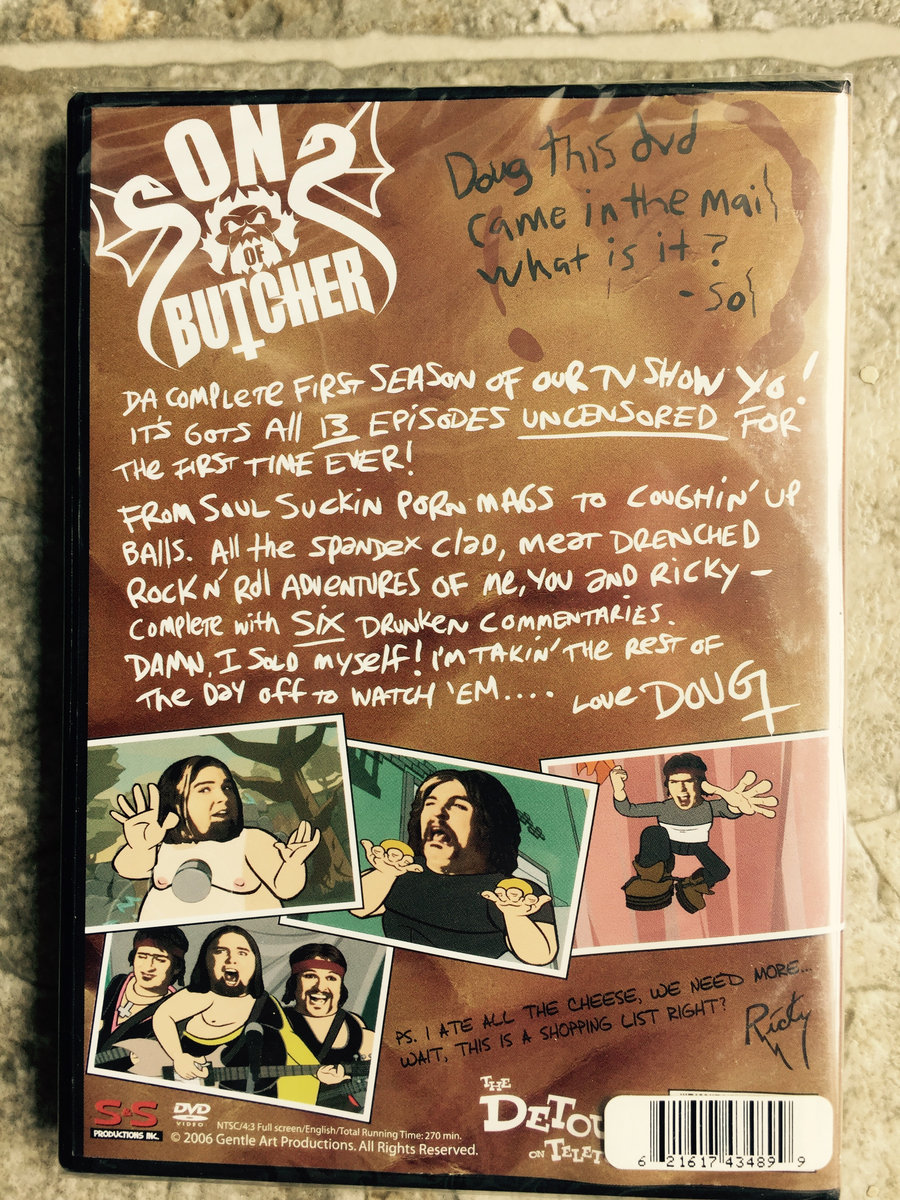 SONS
OF
BUTCHER
Doug this dvd
came in the mail
what is it?
- Sol
DA COMPLETE FIRST SEASON OF OUR TV SHOW YO!
IT'S GOTS All 13 EPISODES UNCENSORED FOR
THE FIRST TIME EVER!
FROM SOUL SUCKIN PORN MAGS TO COUGHIN' UP
BALLS. All the SPANDEX Clad, meat DRENCHED
ROCK N' Roll ADVENTURES OF Me, YOU and RICKY –
Complete with SIX DRUNKEN COMMENTARIES.
DAMN, I SOLD myself! I'm TAKIN' THE REST OF
The DAY off TO WATCH 'EM.... LOVE DOUG
PS. I ATE ALL THE CHEESE, WE NEED MORE...
WAIT, THIS IS A SHOPPING LIST RIGHT? Ricky
S&S
PRODUCTIONS INC.
DVD
VIDEO
NTSC/4:3 Full screen/English/Total Running Time: 270 min.
© 2006 Gentle Art Productions. All Rights Reserved.
THE
DETOU
ON TELET
6 21617 43489 9